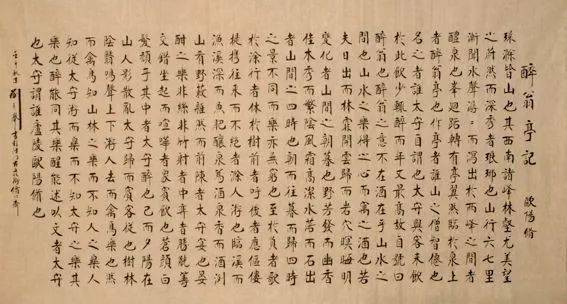 醉翁亭記 歐陽脩
環滁皆山也其西南諸峰林壑尤美望
之蔚然而深秀者瑯琊也山行六七里
漸聞水聲潺〻而瀉出於兩峰之間者
釀泉也峯迴路轉有亭翼然臨於泉上
者醉翁亭也作亭者誰山之僧智僊也
名之者誰太守自謂也太守與客來飲
於此飲少輒醉而年又最高故自號曰
醉翁也醉翁之意不在酒在乎山水之
間也山水之樂得之心而寓之酒也若
夫日出而林霏開雲歸而岩穴暝晦明
變化者山間之朝暮也野芳發而幽香
佳木秀而繁陰風霜高潔水落而石出
者山間之四時也朝而往暮而歸四時
之景不同而樂亦無窮也至於負者歌
於途行者休於樹前者呼後者應傴僂
提攜往來而不絕者滁人游也臨溪而
漁溪深而魚肥釀泉為酒泉香而酒洌
山肴野蔌雜然而前陳者太守宴也宴
酣之樂非絲非竹射者中弈者勝觥籌
交錯坐起而喧嘩者眾賓歡也蒼顏白
髮頹乎其中者太守醉也已而夕陽在
山人影散亂太守歸而賓客從也樹林
陰翳鳴聲上下游人去而禽鳥樂也然
而禽鳥知山林之樂而不知人之樂人
知從太守游而樂而不知太守之樂其
樂也醉能同其樂醒能述以文者太守
也太守謂誰廬陵歐陽脩也